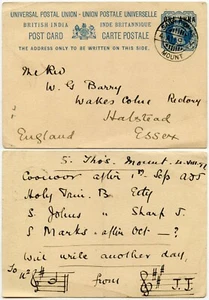 UNIVERSAL POSTAL UNION - UNION POSTALE UNIVERSELLE
BRITISH INDIA INDE BRITANNIQUE
POST CARD CARTE POSTALE
THE ADDRESS ONLY TO BE WRITTEN ON THIS SIDE.
ONE ANNA
MOUNT
The Rev
W. G Barry
Wakes Colne Rectory
Halstead
England Essex
S. Tho's. Mount
Coonoor after 1st Sep
Holy Trin. B
S Johns Sharp J.
S Marks. after Oct — ?
Will write another day,
To from J.J.